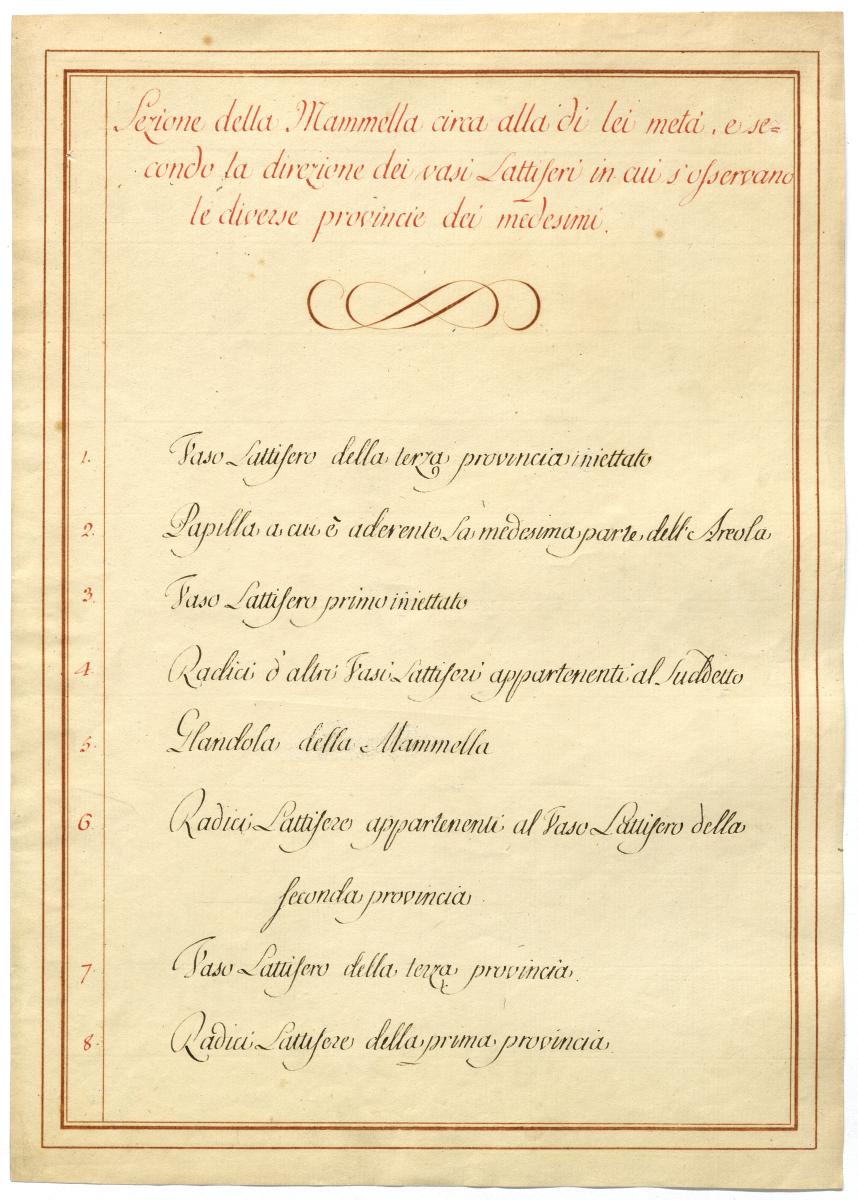 Sezione della Mammella circa alla di lei metà, e se=
condo la direzione dei vasi Lattiferi in cui s'osservano
le diverse provincie dei medesimi.
1. Vaso Lattifero della terza provincia iniettato
2. Papilla a cui è aderente La medesima parte dell'Areola
3. Vaso Lattifero primo iniettato
4. Radici d'altri Vasi Lattiferi appartenenti al Suddetto
5. Glandola della Mammella
6. Radici Lattifere appartenenti al Vaso Lattifero della
seconda provincia
7. Vaso Lattifero della terza provincia.
8. Radici Lattifere della prima provincia